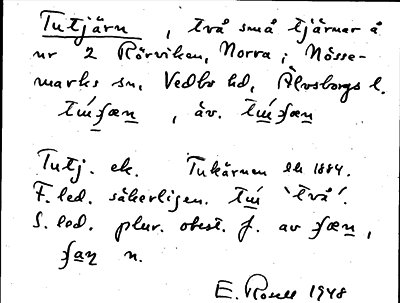 Tutjärn, två små tjärnar å
nr 2 Rörviken, Norra i Nösse-
marks sn, Vedbo hd, Älvsborgs l.
, äv.
Tutj. ek. Tukärnen ek 1884.
F. led. säkerligen. 'två'.
S. led. plur. obest. f. av
n.
E. Rosell 1948